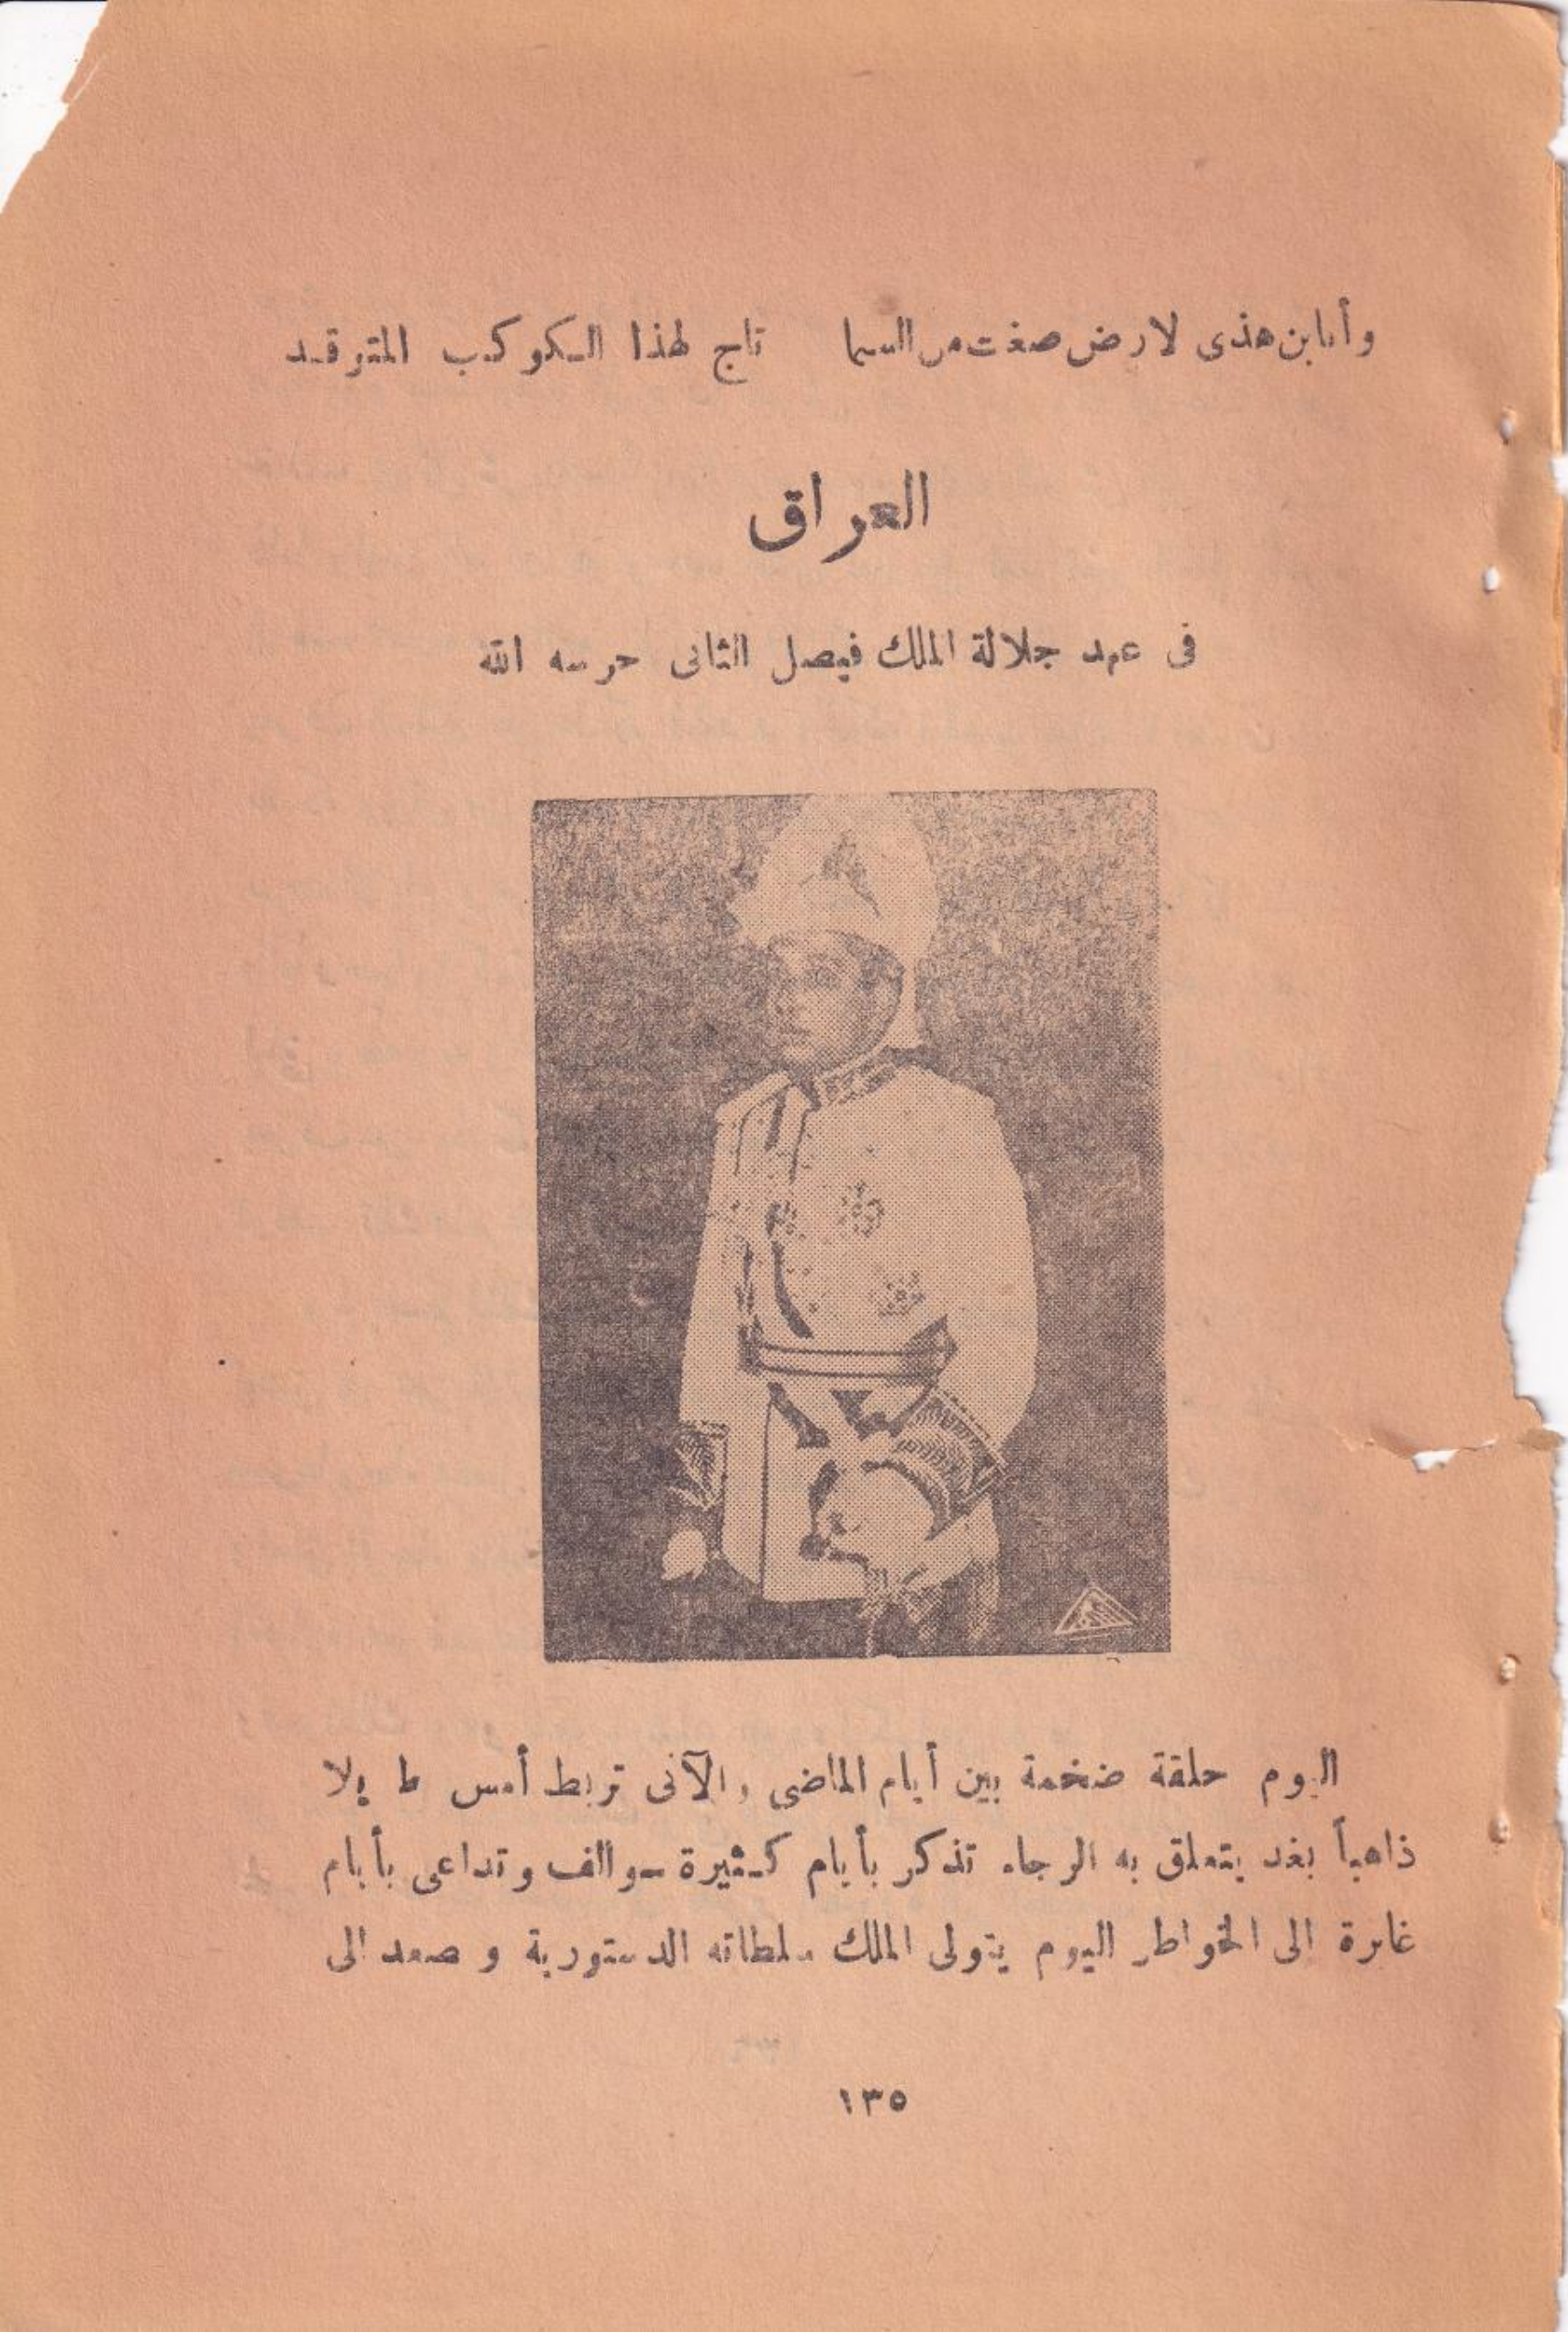 وأنا ابن هذى لارض صغت من السما تاج لهذا الكوكب المتوقد
العراق
فى عهد جلالة الملك فيصل الثانى حرسه الله
اليوم حلقة ضخمة بين أيام الماضى والآتى تربط أمس طويلا
ذاهباً بغد يتعلق به الرجاء تذكر بأيام كثيرة سوالف وتداعى بأيام
غابرة الى الخواطر اليوم يتولى الملك سلطاته الدستورية و صعد الى
١٣٥